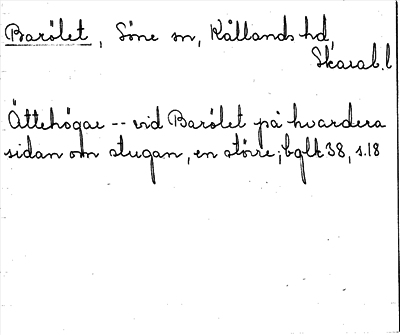 Barölet, Söne sn, Kållands hd,
Skarab.l
Ättehögar -- vid Barölet på hvardera
sidan om stugan, en större; bglt 38, s.18